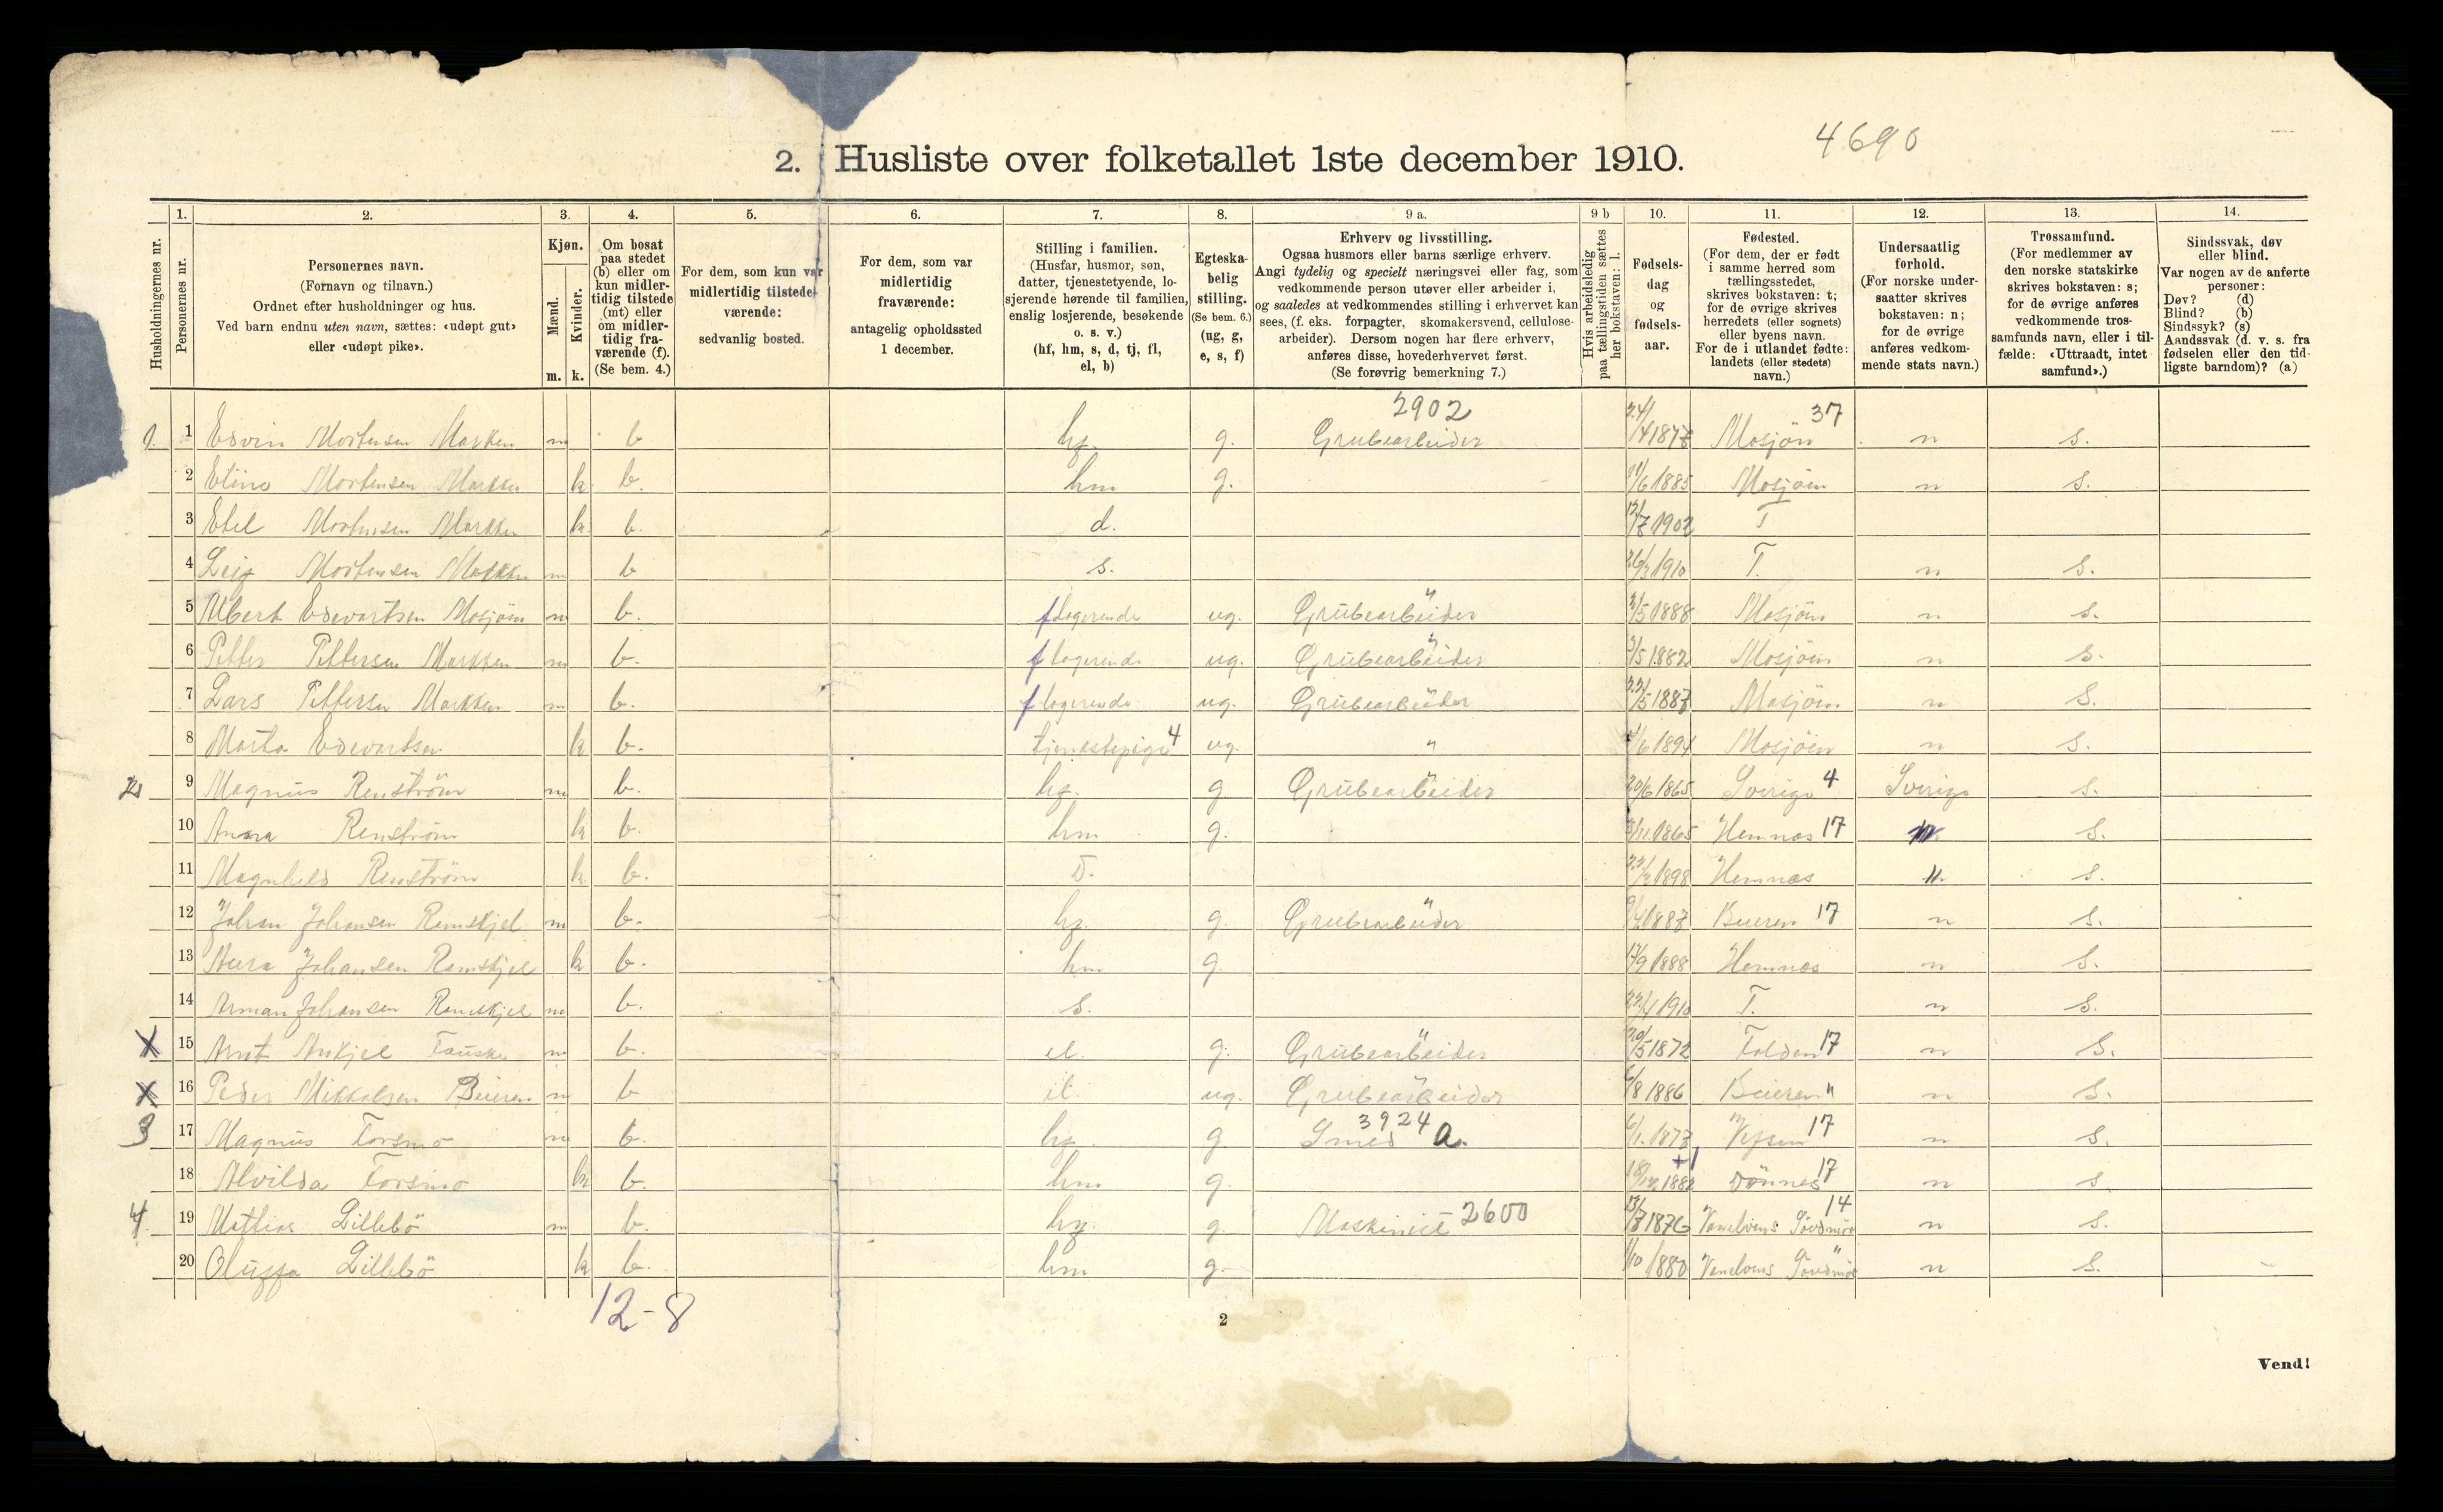 4690
2. Husliste over folketallet 1ste december 1910.
1. 2. 3. 4. 5. 6. 7. 8. 9 a. 9 b 10. 11. 12. 13. 14.
Husholdningernes nr.
Personernes nr.
Personernes navn.
(Fornavn og tilnavn.)
Ordnet efter husholdninger og hus.
Ved barn endnu uten navn, sættes: «udøpt gut»
eller «udøpt pike».
Kjøn.
Mænd.
m.
Kvinder.
k.
Om bosat
paa stedet
(b) eller om
kun midler-
tidig tilstede
(mt) eller
om midler-
tidig fra-
værende (f).
(Se bem. 4.)
For dem, som kun var
midlertidig tilstede-
værende:
sedvanlig bosted.
For dem, som var
midlertidig
fraværende:
antagelig opholdssted
1 december.
Stilling i familien.
(Husfar, husmor, søn,
datter, tjenestetyende, lo-
sjerende hørende til familien,
enslig losjerende, besøkende
o. s. v.)
(hf, hm, s, d, tj, fl,
el, b)
Egteska-
belig
stilling.
(Se bem. 6.)
(ug, g,
e, s, f)
Erhverv og livsstilling.
Ogsaa husmors eller barns særlige erhverv.
Angi tydelig og specielt næringsvei eller fag, som
vedkommende person utøver eller arbeider i,
og saaledes at vedkommendes stilling i erhvervet kan
sees, (f. eks. forpagter, skomakersvend, cellulose-
arbeider). Dersom nogen har flere erhverv,
anføres disse, hovederhvervet først.
(Se forøvrig bemerkning 7.)
Hvis arbeidsledig
paa tællingstiden sættes
her bokstaven: l.
Fødsels-
dag
og
fødsels-
aar.
Fødested.
(For dem, der er født
i samme herred som
tællingsstedet,
skrives bokstaven: t;
for de øvrige skrives
herredets (eller sognets)
eller byens navn.
For de i utlandet fødte:
landets (eller stedets)
navn.)
Undersaatlig
forhold.
(For norske under-
saatter skrives
bokstaven: n;
for de øvrige
anføres vedkom-
mende stats navn.)
Trossamfund.
(For medlemmer av
den norske statskirke
skrives bokstaven: s;
for de øvrige anføres
vedkommende tros-
samfunds navn, eller i til-
fælde: «Uttraadt, intet
samfund».)
Sindssvak, døv
eller blind.
Var nogen av de anførte
personer:
Døv? (d)
Blind? (b)
Sindssyk? (s)
Aandssvak (d. v. s. fra
fødselen eller den tid-
ligste barndom)? (a)
2902 37
1. 1 Edvin Mortensen Marken m b hf. g. Grubearbeider Mosjöen n s.
2 Eline Mortensen Marken k b. hm g. 1885 Mosjöen n s.
3 Etel Mortensen Marken k b. d. 1902 T
4 Leif Mortensen Marken m b s. 1910 T. n s.
5 Albert Edvartsen Mosjöen m b. f logerende ug. Grubearbeider " 1888 Mosjöen n s.
6 Petter Pettersen Marken m b. f logerende ug. Grubearbeider " 1882 Mosjöen n s.
7 Lars Pettersen Marken m b. f logerende ug. Grubearbeider 1887 Mosjöen n s.
8 Marta Edvartsen k b. tjenestepige 4 ug. " Mosjöen n s.
2 9 Magnus Renström m b. hf. g Grubearbeider " 20/6 1865 Sverige 4 Sverige s.
10 Anna Renström k b. hm g. 1865 Hemnæs 17 n s.
11 Magnhild Renström k b. D. 1898 Hemnæs n. s.
12 Johan Johansen Ramskjel m b. hf. g. Grubearbeider " 1887 Beieren 17 n s.
13 Johansen Ramskjel k b. hm g. 1888 Hemnæs n s.
14 Arman Johansen Ramskjel m b. s. 1910 T. n s.
X 15 Arnt Ankjel Fauske m b. el. g. Grubearbeider " 20/5 1872 Folden 17 n s.
X 16 Peder Mikkalsen Beieren m b el. ug. Grubearbeider " 6/8 1886 Beieren " n s.
3 17 Magnus Forsmo m b. hf. g Smed 3924 a. Vefsen 17 n s.
18 Alvilda Forsmo k b. hm g. +1 Dönnes 17 n s.
4. 19 Mathias Lillebö m b. hf. g. Maskinist 2600 1876 Vanelvens Söndmör 14 n s.
20 Oluffa Lillebö k b. hm g. 1/10 1880 Vanelvens Söndmör " n s.
12-8
2
Vend!